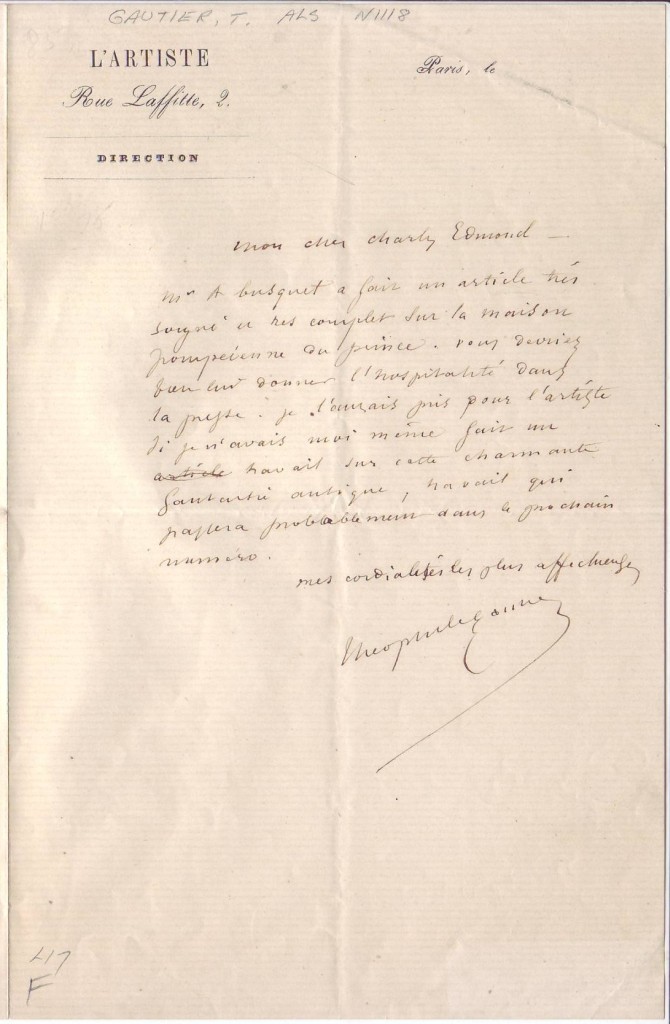 GAUTIER, T. ALS N1118
L'ARTISTE
Rue Laffitte, 2.
DIRECTION
Paris, le
mon cher charly Edmond —
Mr A busquet a fait un article très
soigné et res complet sur la maison
pompéienne du prince. vous devriez
bien lui donner l'hospitalité dans
la presse. je l'aurais pris pour l'artiste
si je n'avais moi même fait un
article travail sur cette charmante
fantaisie antique, travail qui
passera probablement dans le prochain
numéro.
mes cordialités les plus affectueuses
théophile gautier
417
F